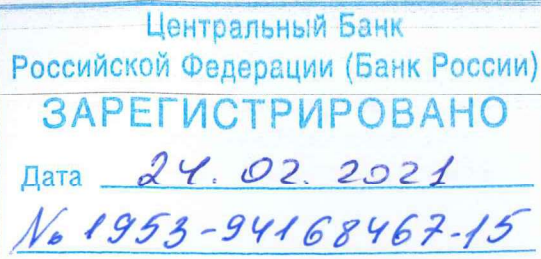 Центральный Банк
Российской Федерации (Банк России)
ЗАРЕГИСТРИРОВАНО
Дата 24. 02. 2021
№ 1953-94168467-15